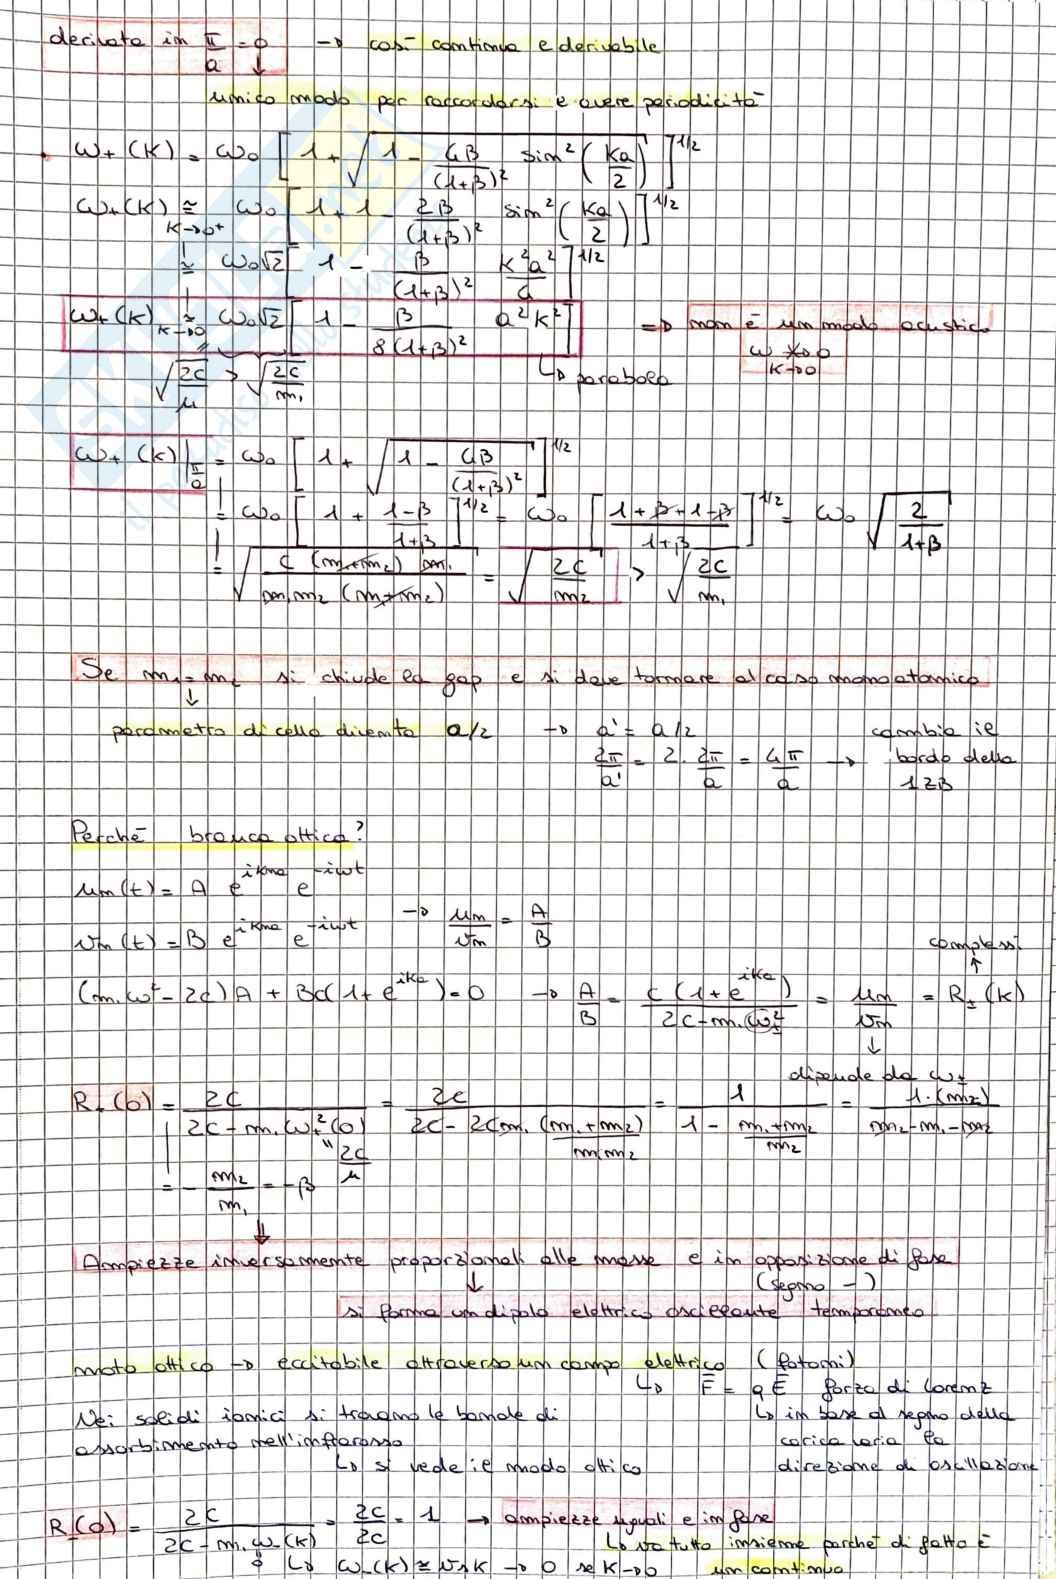 derivata in π/a = 0 → così continua e derivabile
↓
unico modo per raccordarsi e avere periodicità
• ω₊(k) = ω₀ [1 + √(1 - 4β/(1+β)² sin²(ka/2))]^1/2
ω₊(k) ≅ (k→0⁺) ω₀ [1 + 1 - 2β/(1+β)² sin²(ka/2)]^1/2
≅ ω₀√2 [1 - β/(1+β)² k²a²/4]^1/2
ω₊(k) ≅ (k→0) ω₀√2 [1 - β/8(1+β)² a²k²] ⇒ non è un modo acustico
ω ↛ 0
k→0
↳ parabola
√(2C/μ) > √(2C/m₁)
ω₊(k)|π/a = ω₀ [1 + √(1 - 4β/(1+β)²)]^1/2
= ω₀ [1 + (1-β)/(1+β)]^1/2 = ω₀ [(1+β+1-β)/(1+β)]^1/2 = ω₀ √(2/(1+β))
= √(C (m₁+m₂) 2m₁ / m₁m₂ (m₁+m₂)) = √(2C/m₂) > √(2C/m₁)
Se m₁=m₂ si chiude la gap e si deve tornare al caso monoatomico
↓
parametro di cella diventa a/2 → a' = a/2 cambia il
2π/a' = 2·2π/a = 4π/a → bordo della
1ZB
Perché branca ottica?
un(t) = A e^ikna e^-iωt
vn(t) = B e^ikna e^-iωt → un/vn = A/B
complessi
↑
(m₁ω² - 2C)A + BC(1 + e^ika) = 0 → A/B = C(1+e^ika)/(2C - m₁ω±²) = un/vn = R±(k)
↓
dipende da ω±
R₊(0) = 2C/(2C - m₁ω₊²(0)) = 2C/(2C - 2Cm₁ (m₁+m₂)/m₁m₂) = 1/(1 - (m₁+m₂)/m₂) = 1·(m₂)/(m₂-m₁-m₂)
" 2C/μ
= - m₂/m₁ = -β
⇓
Ampiezze inversamente proporzionali alle masse e in opposizione di fase
↓ (segno -)
si forma un dipolo elettrico oscillante temporaneo
moto ottico → eccitabile attraverso un campo elettrico (fotoni)
↳ F̄ = qĒ forza di Lorenz
Nei solidi ionici si trovano le bande di ↳ in base al segno della
assorbimento nell'infrarosso carica varia la
↳ si vede il modo ottico direzione di oscillazione
R₋(0) = 2C/(2C - m₁ω₋(k)) = 2C/2C = 1 → ampiezze uguali e in fase
↳ va tutto insieme perché di fatto è
↳ ω₋(k) ≅ vsk → 0 se k→0 un continuo